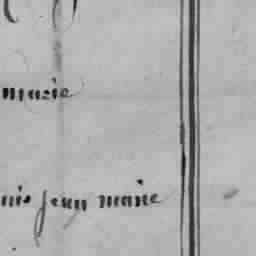 marie
nis jean marie